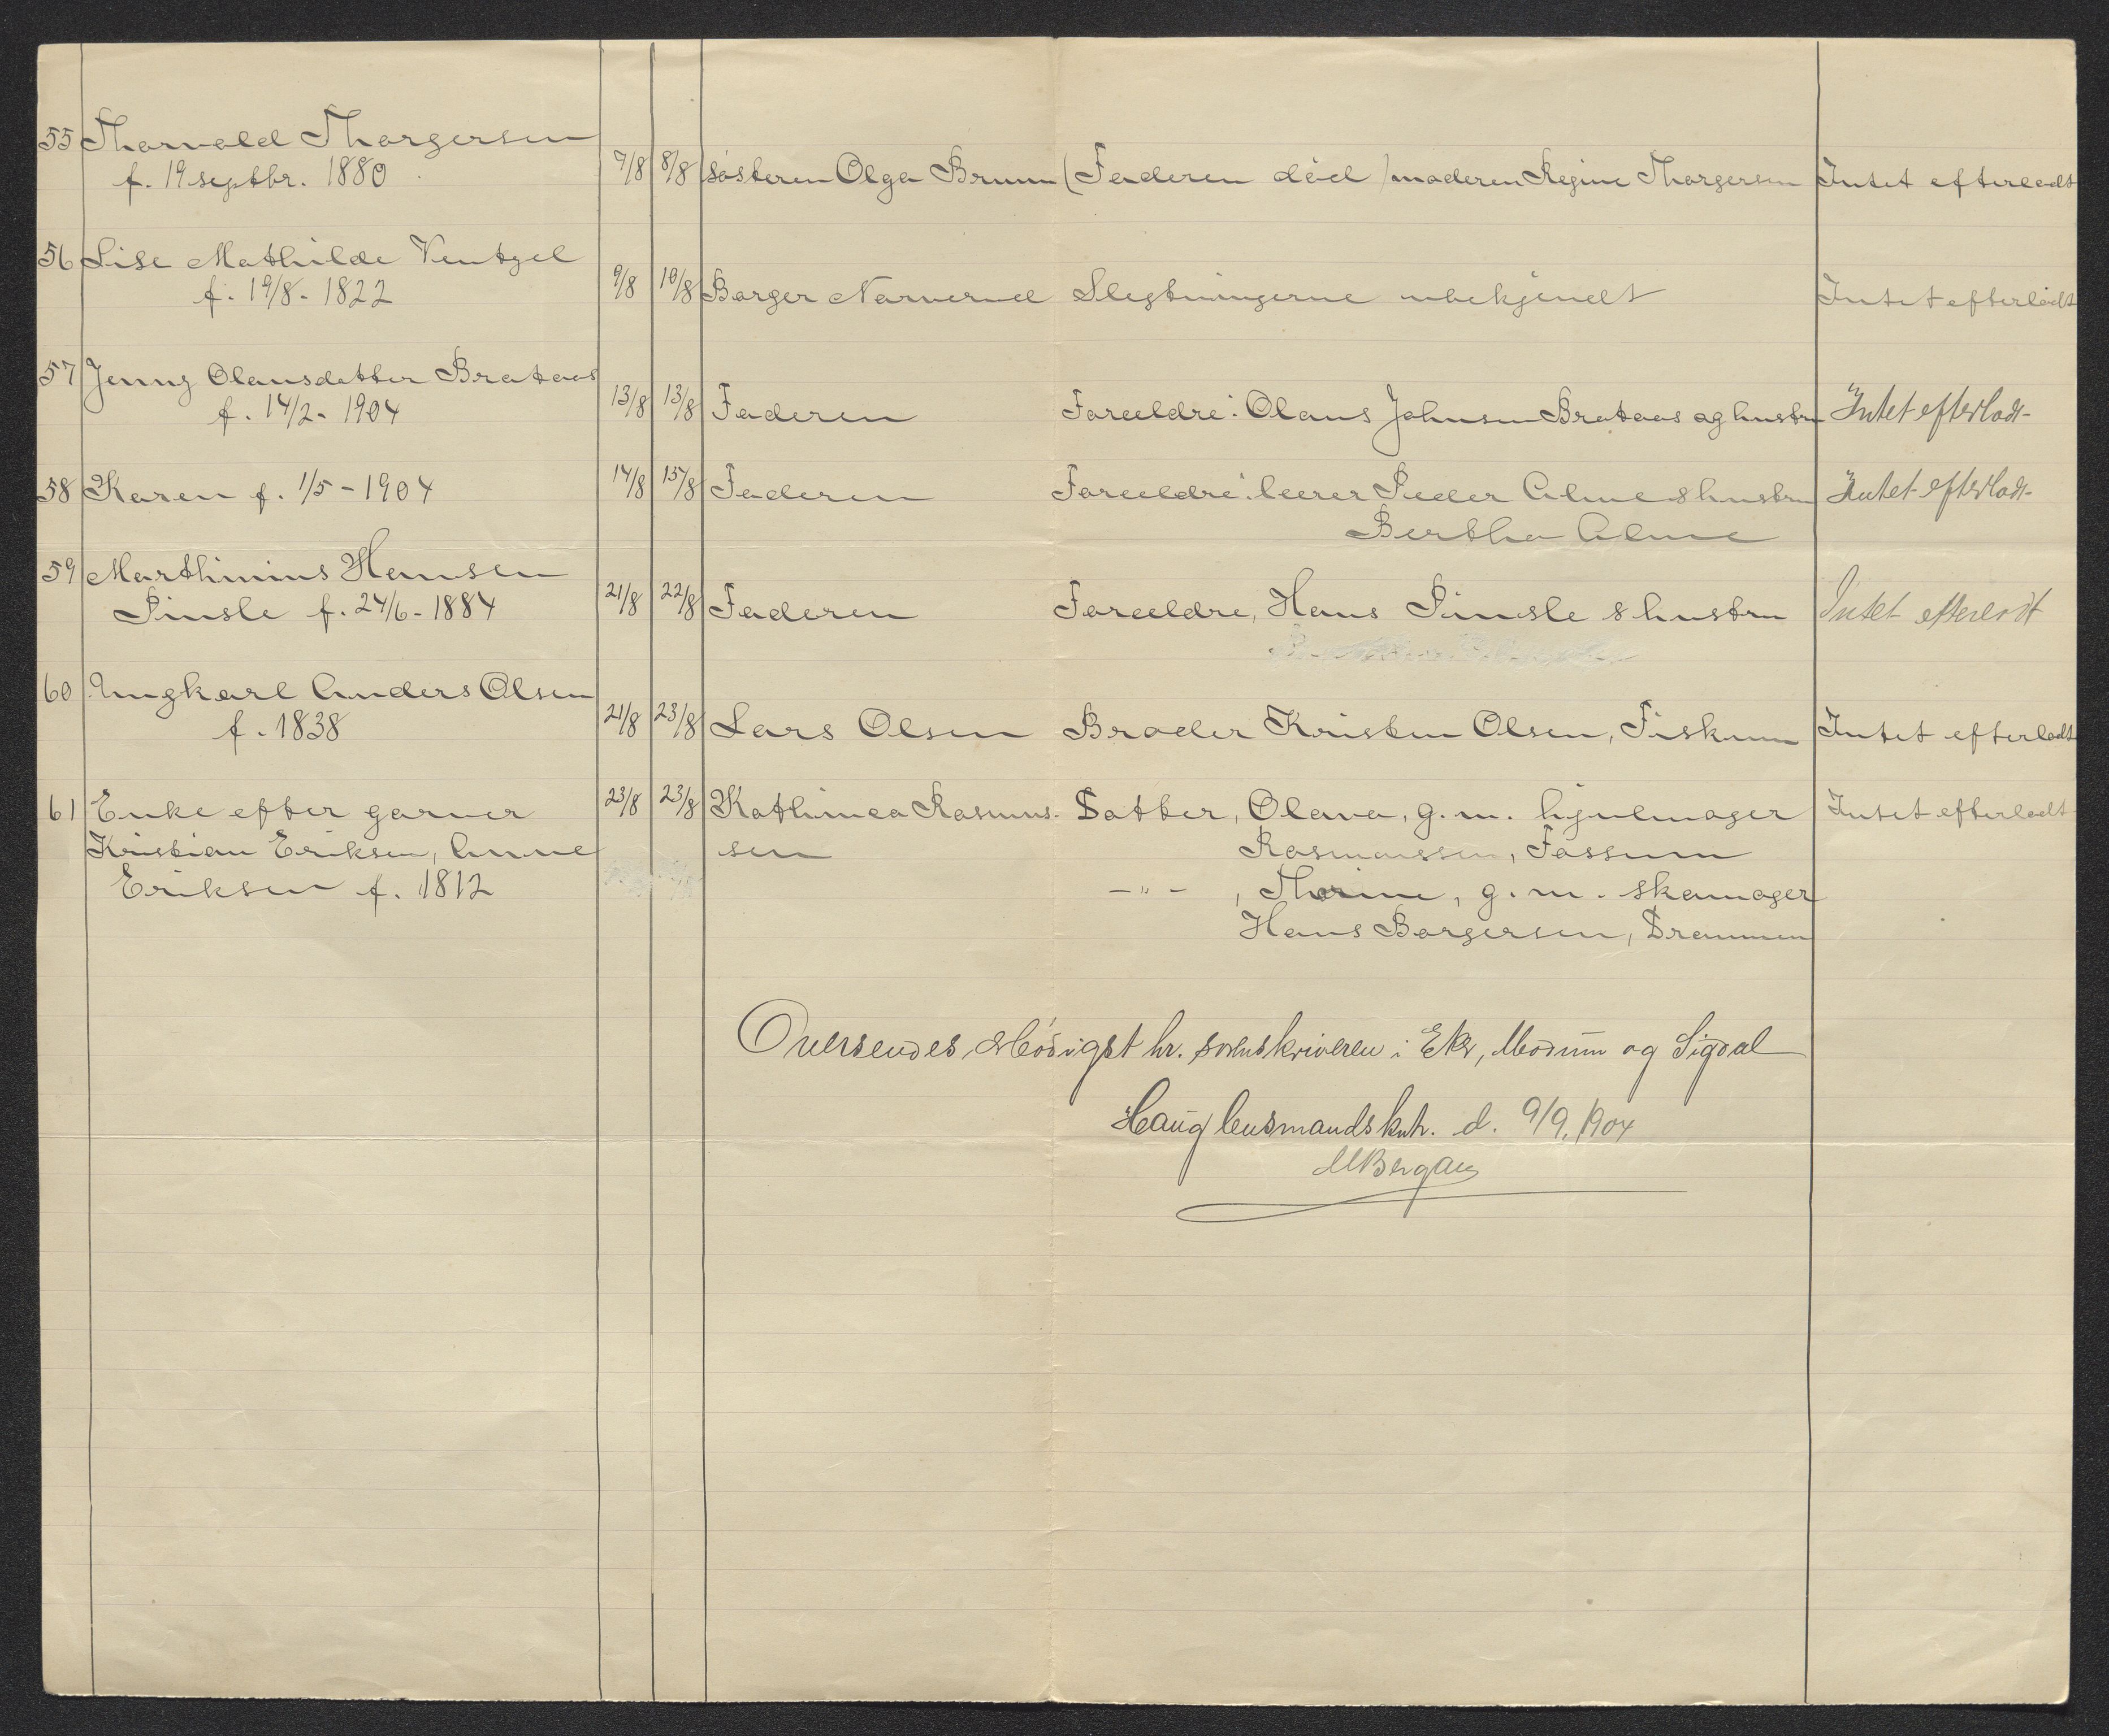 55 Thorvald Thorgersen
f. 19 septbr. 1880 7/8 8/8 søsteren Olga Bruun (Faderen død) moderen Regine Thorgersen Intet efterladt
56 Lise Mathilde Ventzel
f. 19/8 - 1822 9/8 10/8 Borger Narverud Slegtningerne ubekjendt Intet efterladt
57 Jenny Olausdatter Brataas
f. 14/2 - 1904 13/8 13/8 Faderen Forældre: Olaus Johnsen Brataas og hustru Intet efterladt
58 Karen f. 1/5 - 1904 14/8 15/8 Faderen Forældre: lærer Peder Alme & hustru Intet efterladt
Bertha Alme
59 Marthinius Hansen
Pinsle f. 24/6 - 1884 21/8 22/8 Faderen Forældre, Hans Pinsle & hustru Intet efterladt
60 Ungkarl Anders Olsen
f. 1838 21/8 23/8 Lars Olsen Broder Kristen Olsen, Fiskum Intet efterladt
61 Enke efter garver 23/8 23/8 Kathinca Rasmus- Datter, Olava, g. m. hjulmager Intet efterladt
Kristian Eriksen, Anne sen Rasmussen, Fossum
Eriksen f. 1812 - " - , Thorine, g. m. skomager
Hans Borgersen, Drammen
Oversendes ærbødigst hr. sorenskriveren i Eker, Modum og Sigdal
Haug lensmandskntr. d. 9/9. 1904